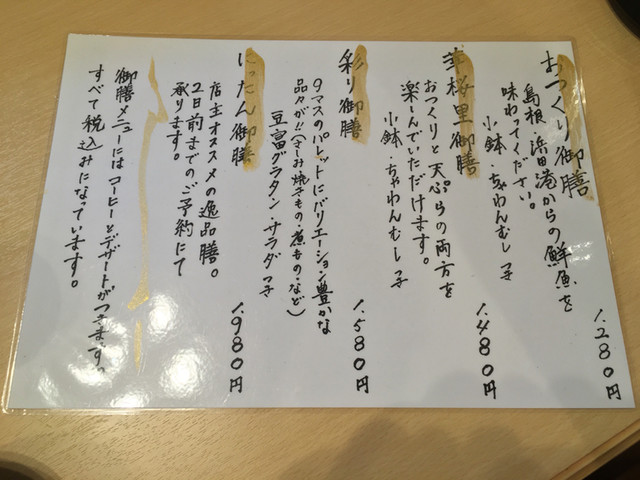 おつくり御膳
島根、浜田港からの鮮魚を
味わってください。
小鉢・ちゃわんむし 子
1.280円
華桜里御膳
おつくりと天ぷらの両方を
楽しんでいただけます。
小鉢・ちゃわんむし 子
1.480円
彩り御膳
9マスのパレットにバリエーション豊かな
品々が!!(さしみ・焼きもの・煮もの・など)
豆富グラタン・サラダ 子
1.580円
にったん御膳
店主オススメの逸品膳。
2日前までのご予約にて
承ります。
1.980円
御膳メニューにはコーヒーとデザートがつきます。
すべて税込みになっています。